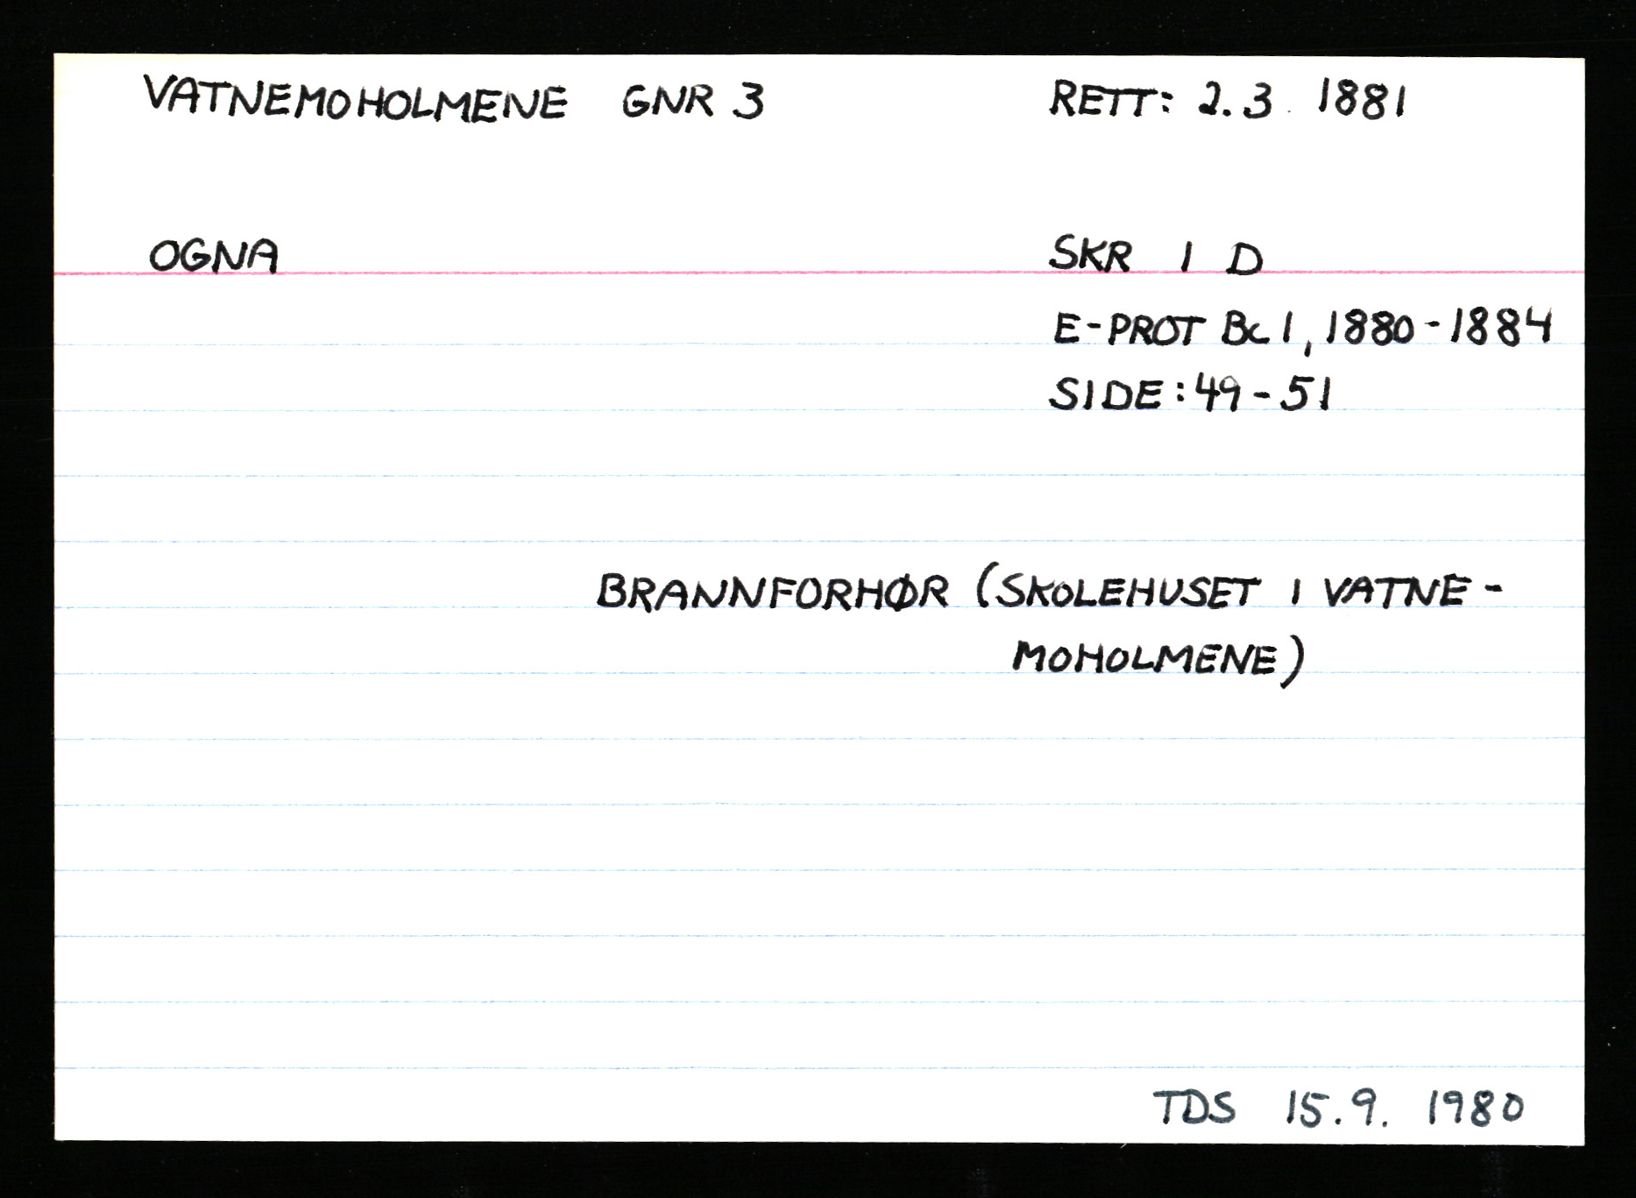 VATNEMOHOLMENE GNR 3 RETT: 2.3. 1881
OGNA SKR I D
E-PROT Bc 1, 1880-1884
SIDE: 49-51
BRANNFORHØR (SKOLEHUSET I VATNE-
MOHOLMENE)
TDS 15.9. 1980